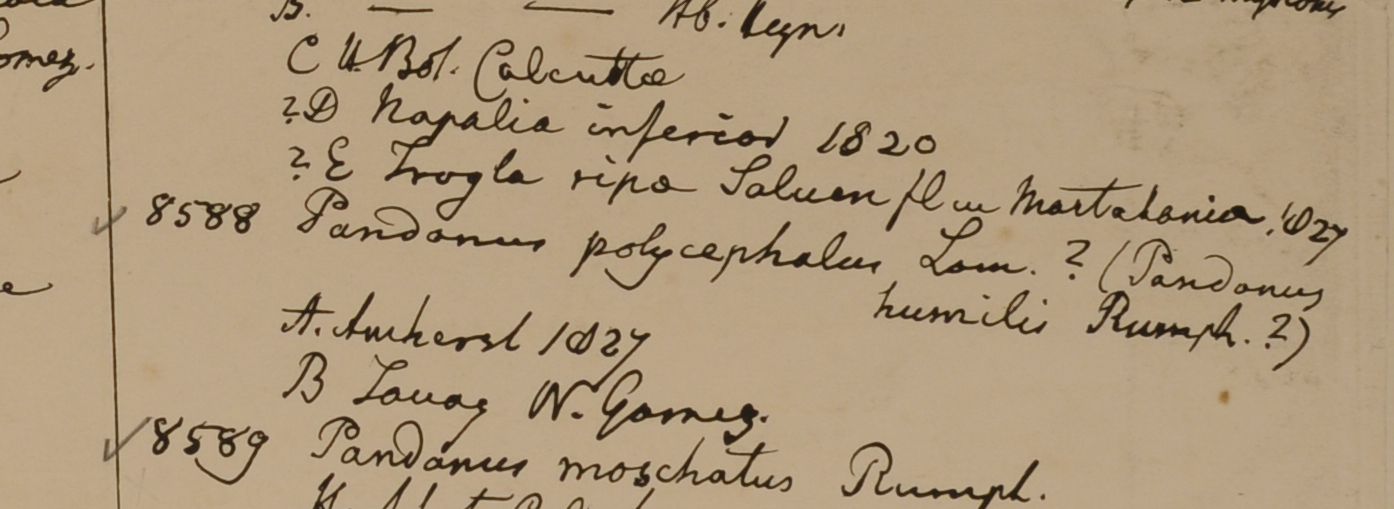 B. — — Hb. Heyn.
C H. Bot. Calcutta
?D Napalia inferior 1820
?E Trogla ripa Saluen fluv Martabania. 1827
8588 Pandanus polycephalus Lam. ? (Pandanus
humilis Rumph. ?)
A. Amherst 1827
B Tavoy W. Gomez.
8589 Pandanus moschatus Rumph.
omez.